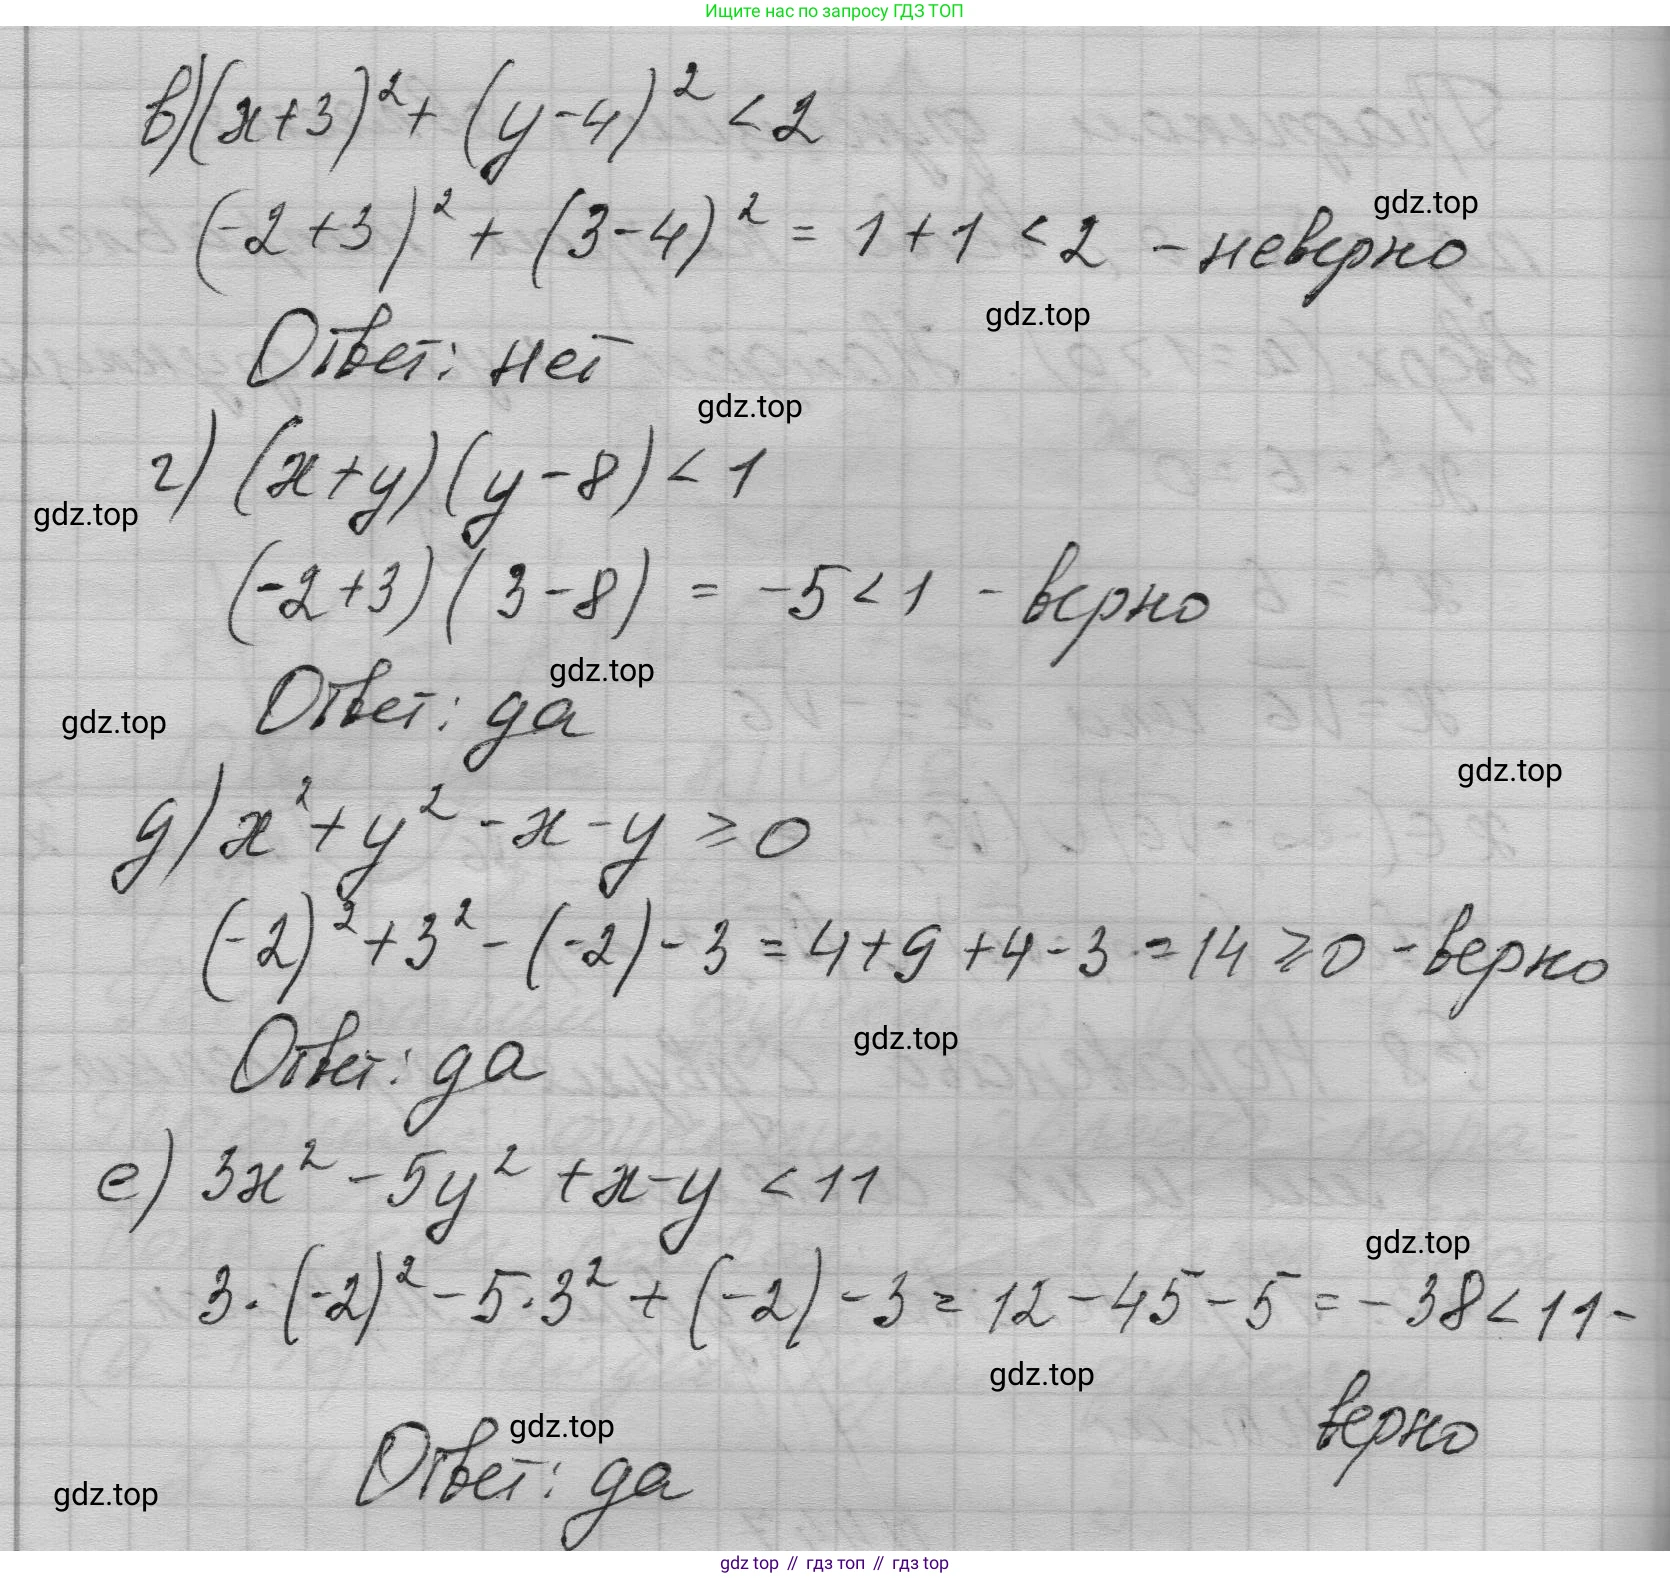 Ищите нас по запросу ГДЗ ТОП
в) (x+3)² + (y-4)² < 2
(-2+3)² + (3-4)² = 1+1 < 2 - неверно
gdz.top
Ответ: нет
gdz.top
gdz.top
г) (x+y)(y-8) < 1
gdz.top
(-2+3)(3-8) = -5 < 1 - верно
gdz.top
Ответ: да
gdz.top
gdz.top
д) x² + y² - x - y ≥ 0
(-2)² + 3² - (-2) - 3 = 4+9+4-3 = 14 ≥ 0 - верно
gdz.top
Ответ: да
е) 3x² - 5y² + x - y < 11
gdz.top
3·(-2)² - 5·3² + (-2) - 3 = 12 - 45 - 5 = -38 < 11 -
gdz.top
верно
gdz.top
Ответ: да
gdz.top
gdz top // гдз топ // гдз top